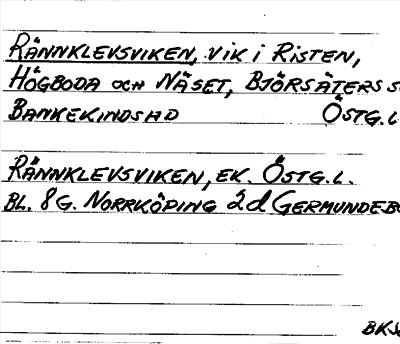 RÄNNKLEVSVIKEN, VIK I RISTEN,
HÖGBODA OCH NÄSET, BJÖRSÄTERS S
BANKEKINDS HD ÖSTG.L
RÄNNKLEVSVIKEN, EK. ÖSTG.L.
BL. 8G. NORRKÖPING 2d GERMUNDEB